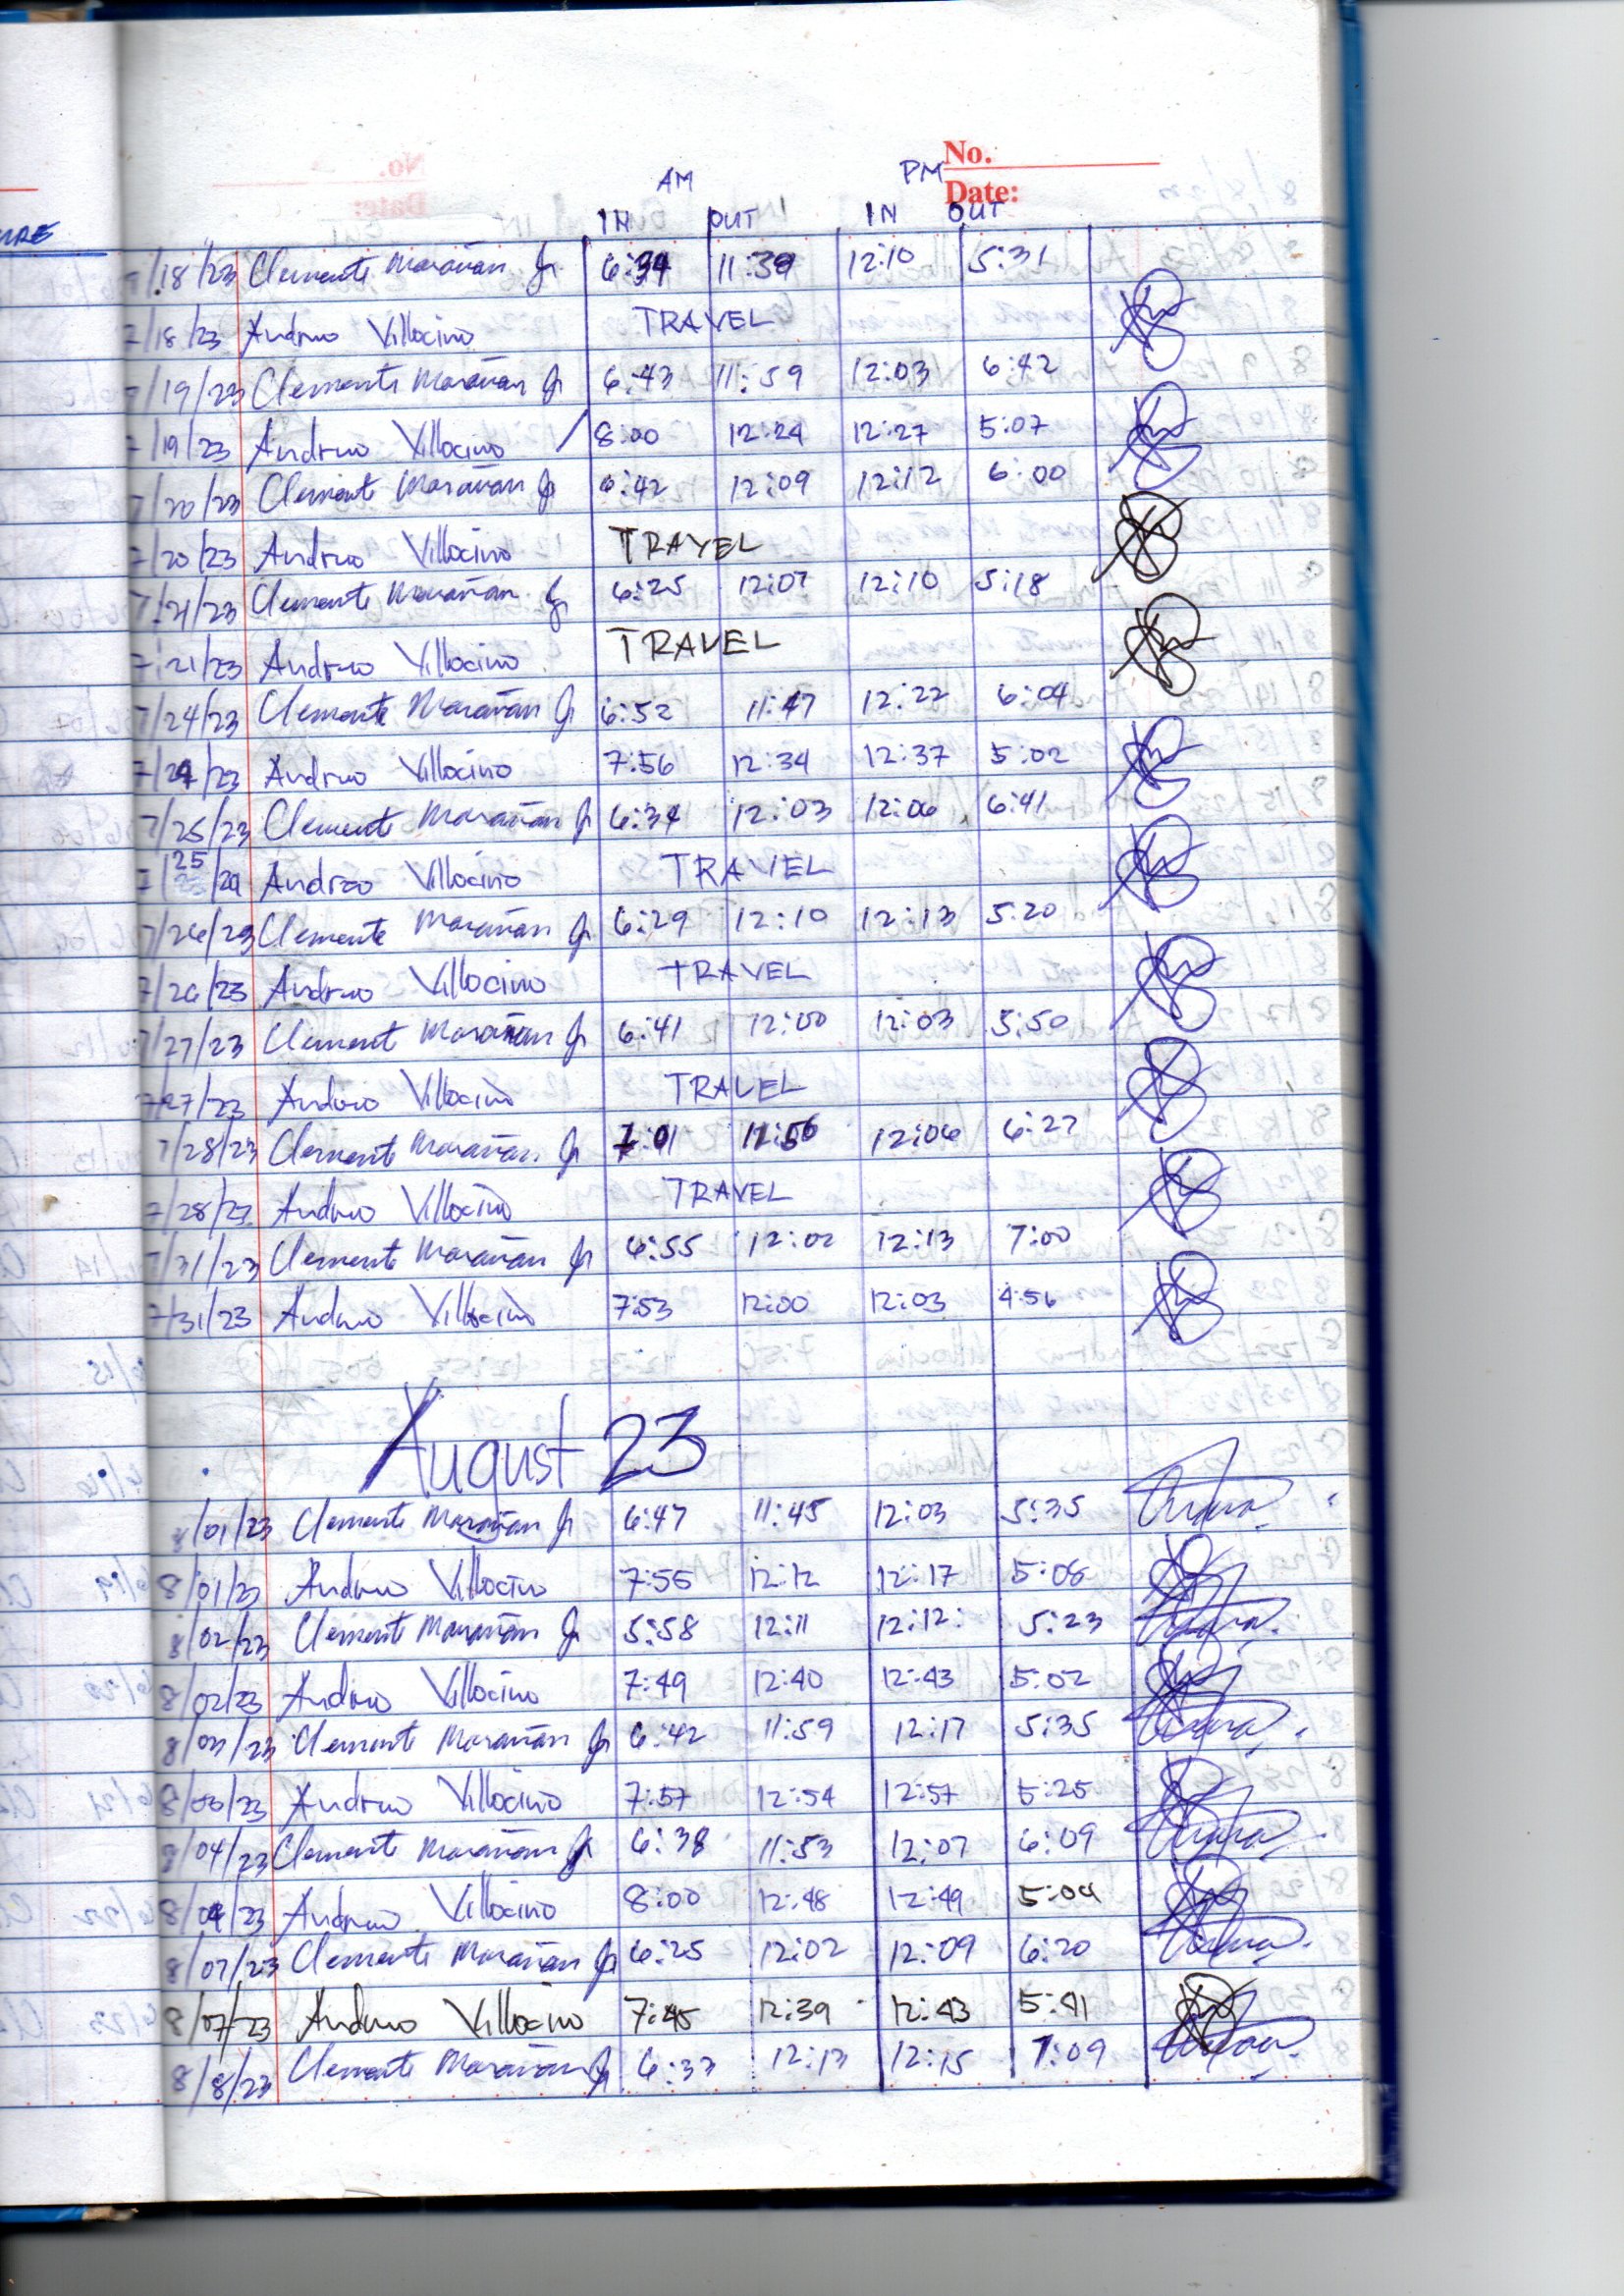 No.
AM PM
Date:
IN OUT IN OUT
URE
/18/23 Clemente Marañan Jr 11:39 12:10 5:31
7/18/23 Andrwo Villocino TRAVEL
7/19/23 Clemente Marañan Jr 6:43 11:59 12:03 6:42
7/19/23 Andrwo Villocino 8:00 12:24 12:27 5:07
7/20/23 Clemente Marañan Jr 6:42 12:09 12:12 6:00
7/20/23 Andrwo Villocino TRAVEL
7/21/23 Clemente Marañan Jr 6:25 12:07 12:10 5:18
7/21/23 Andrwo Villocino TRAVEL
7/24/23 Clemente Marañan Jr 6:52 11:47 12:22 6:04
7/24/23 Andrwo Villocino 7:56 12:34 12:37 5:02
7/25/23 Clemente Marañan Jr 6:34 12:03 12:06 6:41
7/25/ Andrwo Villocino TRAVEL
7/26/23 Clemente Marañan Jr 6:29 12:10 12:13 5:20
7/26/23 Andrwo Villocino TRAVEL
7/27/23 Clemente Marañan Jr 6:41 12:00 12:03 5:50
7/27/23 Andrwo Villocino TRAVEL
7/28/23 Clemente Marañan Jr 7:01 12:06 6:27
7/28/23 Andrwo Villocino TRAVEL
7/31/23 Clemente Marañan Jr 6:55 12:02 12:13 7:00
7/31/23 Andrwo Villocino 7:53 12:00 12:03 4:56
August 23
8/01/23 Clemente Marañan Jr 6:47 11:45 12:03 5:35
8/01/23 Andrwo Villocino 7:55 12:12 12:17 5:08
8/02/23 Clemente Marañan Jr 5:58 12:11 12:12 5:23
8/02/23 Andrwo Villocino 7:49 12:40 12:43 5:02
8/03/23 Clemente Marañan Jr 6:42 11:59 12:17 5:35
8/03/23 Andrwo Villocino 7:57 12:54 12:57 5:25
8/04/23 Clemente Marañan Jr 6:38 11:53 12:07 6:09
8/04/23 Andrwo Villocino 8:00 12:48 12:49 5:04
8/07/23 Clemente Marañan Jr 6:25 12:02 12:09 6:20
8/07/23 Andrwo Villocino 7:45 12:39 12:43 5:41
8/8/23 Clemente Marañan Jr 6:33 12:13 12:15 7:09